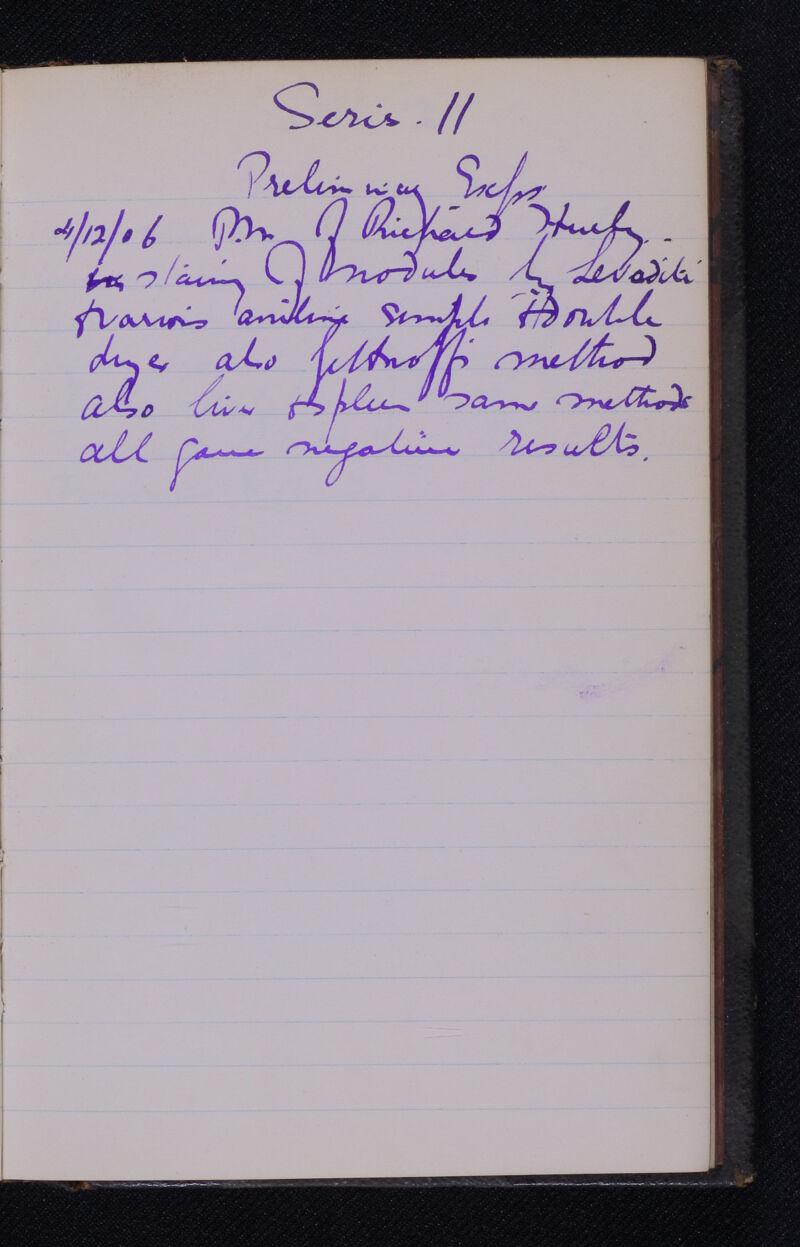 Series. 11
Preliminary Exps
4/12/06 P.M. of Richard
staining of nodules by Levaditi
+ various aniline simple + double
dyes also method
also liver + spleen same methods
all gave negative results.